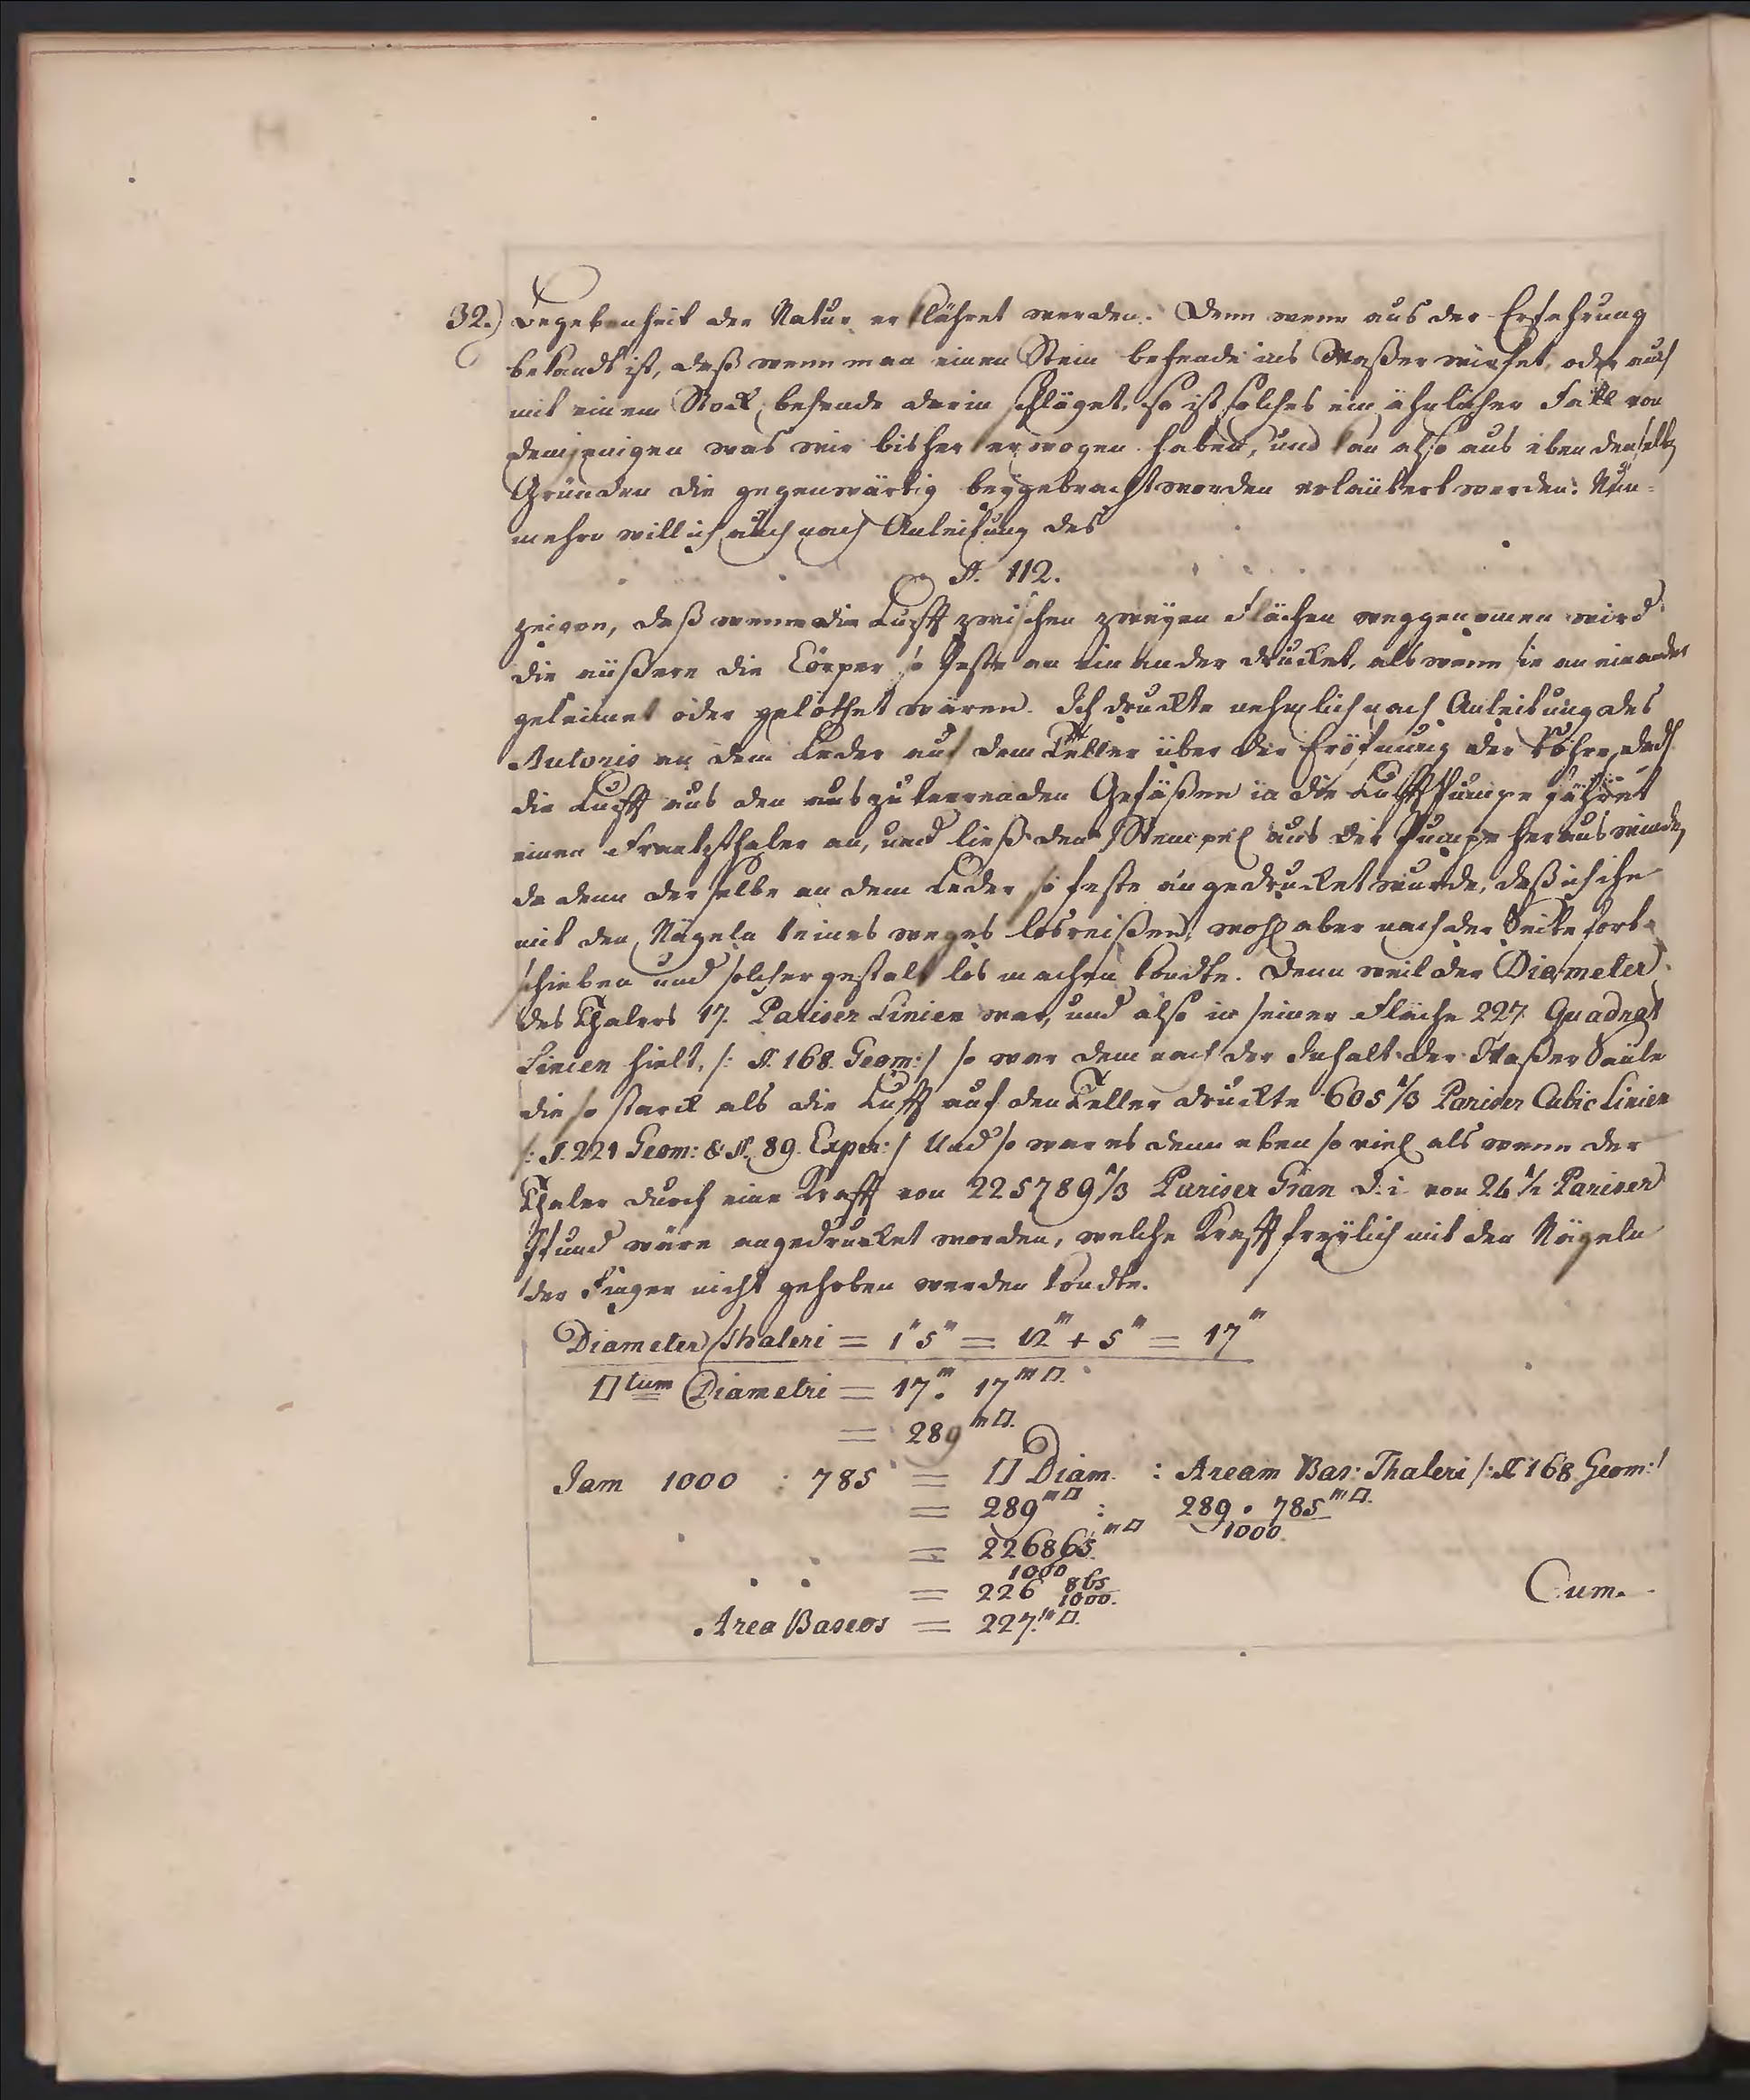 32.) Begebenheit der Natur erklähret werden. Denn wenn aus der Erfahrung
bekandt ist, daß wenn man einen Stein behende ins Waßer wirfet, oder auch
mit einem Stock behende darin schläget, so ist solches ein ähnlicher Fall von
demjenigen was wir bisher erwogen haben, und kan also aus eben denselben
Gründen die gegenwärtig beÿgebracht worden erläutert werden. Nun-
mehro will ich auch nach Anleitung des
§. 112.
zeigen, daß wenn die Lufft zwischen zweÿen Flächen weggenomen wird
die äußere die Cörper so feste an ein ander drucket, als wenn sie an einander
geleimet oder gelöthet wären. Ich druckte nehmlich nach Anleitung des
Autoris an dem Leder auf dem Teller über der Eröfnung der Röhre, dadh
die Lufft aus den auszuleerenden Gefäßen in die Lufft Pumpe fähret
einen Frantzthaler an, und ließ den Stempel aus der Pumpe heraus winden
da denn derselbe an dem Leder so feste angedrucket wurde, daß ich ihn
mit den Nägeln keines weges losreißen, wohl aber nach der Seite fort-
schieben und solcher gestalt los machen kondte. Denn weil der Diameter
des Thalers 17. Pariser Linien war, und also in seiner Fläche 227 Quadrat
Linien hielt, /: §. 168. Geom: / so war demnach der Inhalt der Waßer Säule
die so starck als die Lufft auf den Teller druckte 605 1/3 Pariser Cubic Linien
/: §. 221 Geom: & §. 89. Exper: / Und so war es denn eben so viel als wenn der
Thaler durch eine Krafft von 225789 1/3 Pariser Gran d. i. von 24 1/2 Pariser
Pfund wäre angedrucket worden, welche Krafft freÿlich mit den Nägeln
der Finger nicht gehoben werden kondte.
Diameter Thaleri = 1" 5''' = 12''' + 5''' = 17'''
□tum Diametri = 17'''. 17'''□.
= 289'''□.
Jam 1000 : 785 = □ Diam. : Aream Bas: Thaleri /: § 168. Geom: /
= 289'''□ : 289 . 785'''□. / 1000.
= 226865.'''□ / 1000
= 226 865/1000.
Area Baseos = 227.'''□.
Cum.